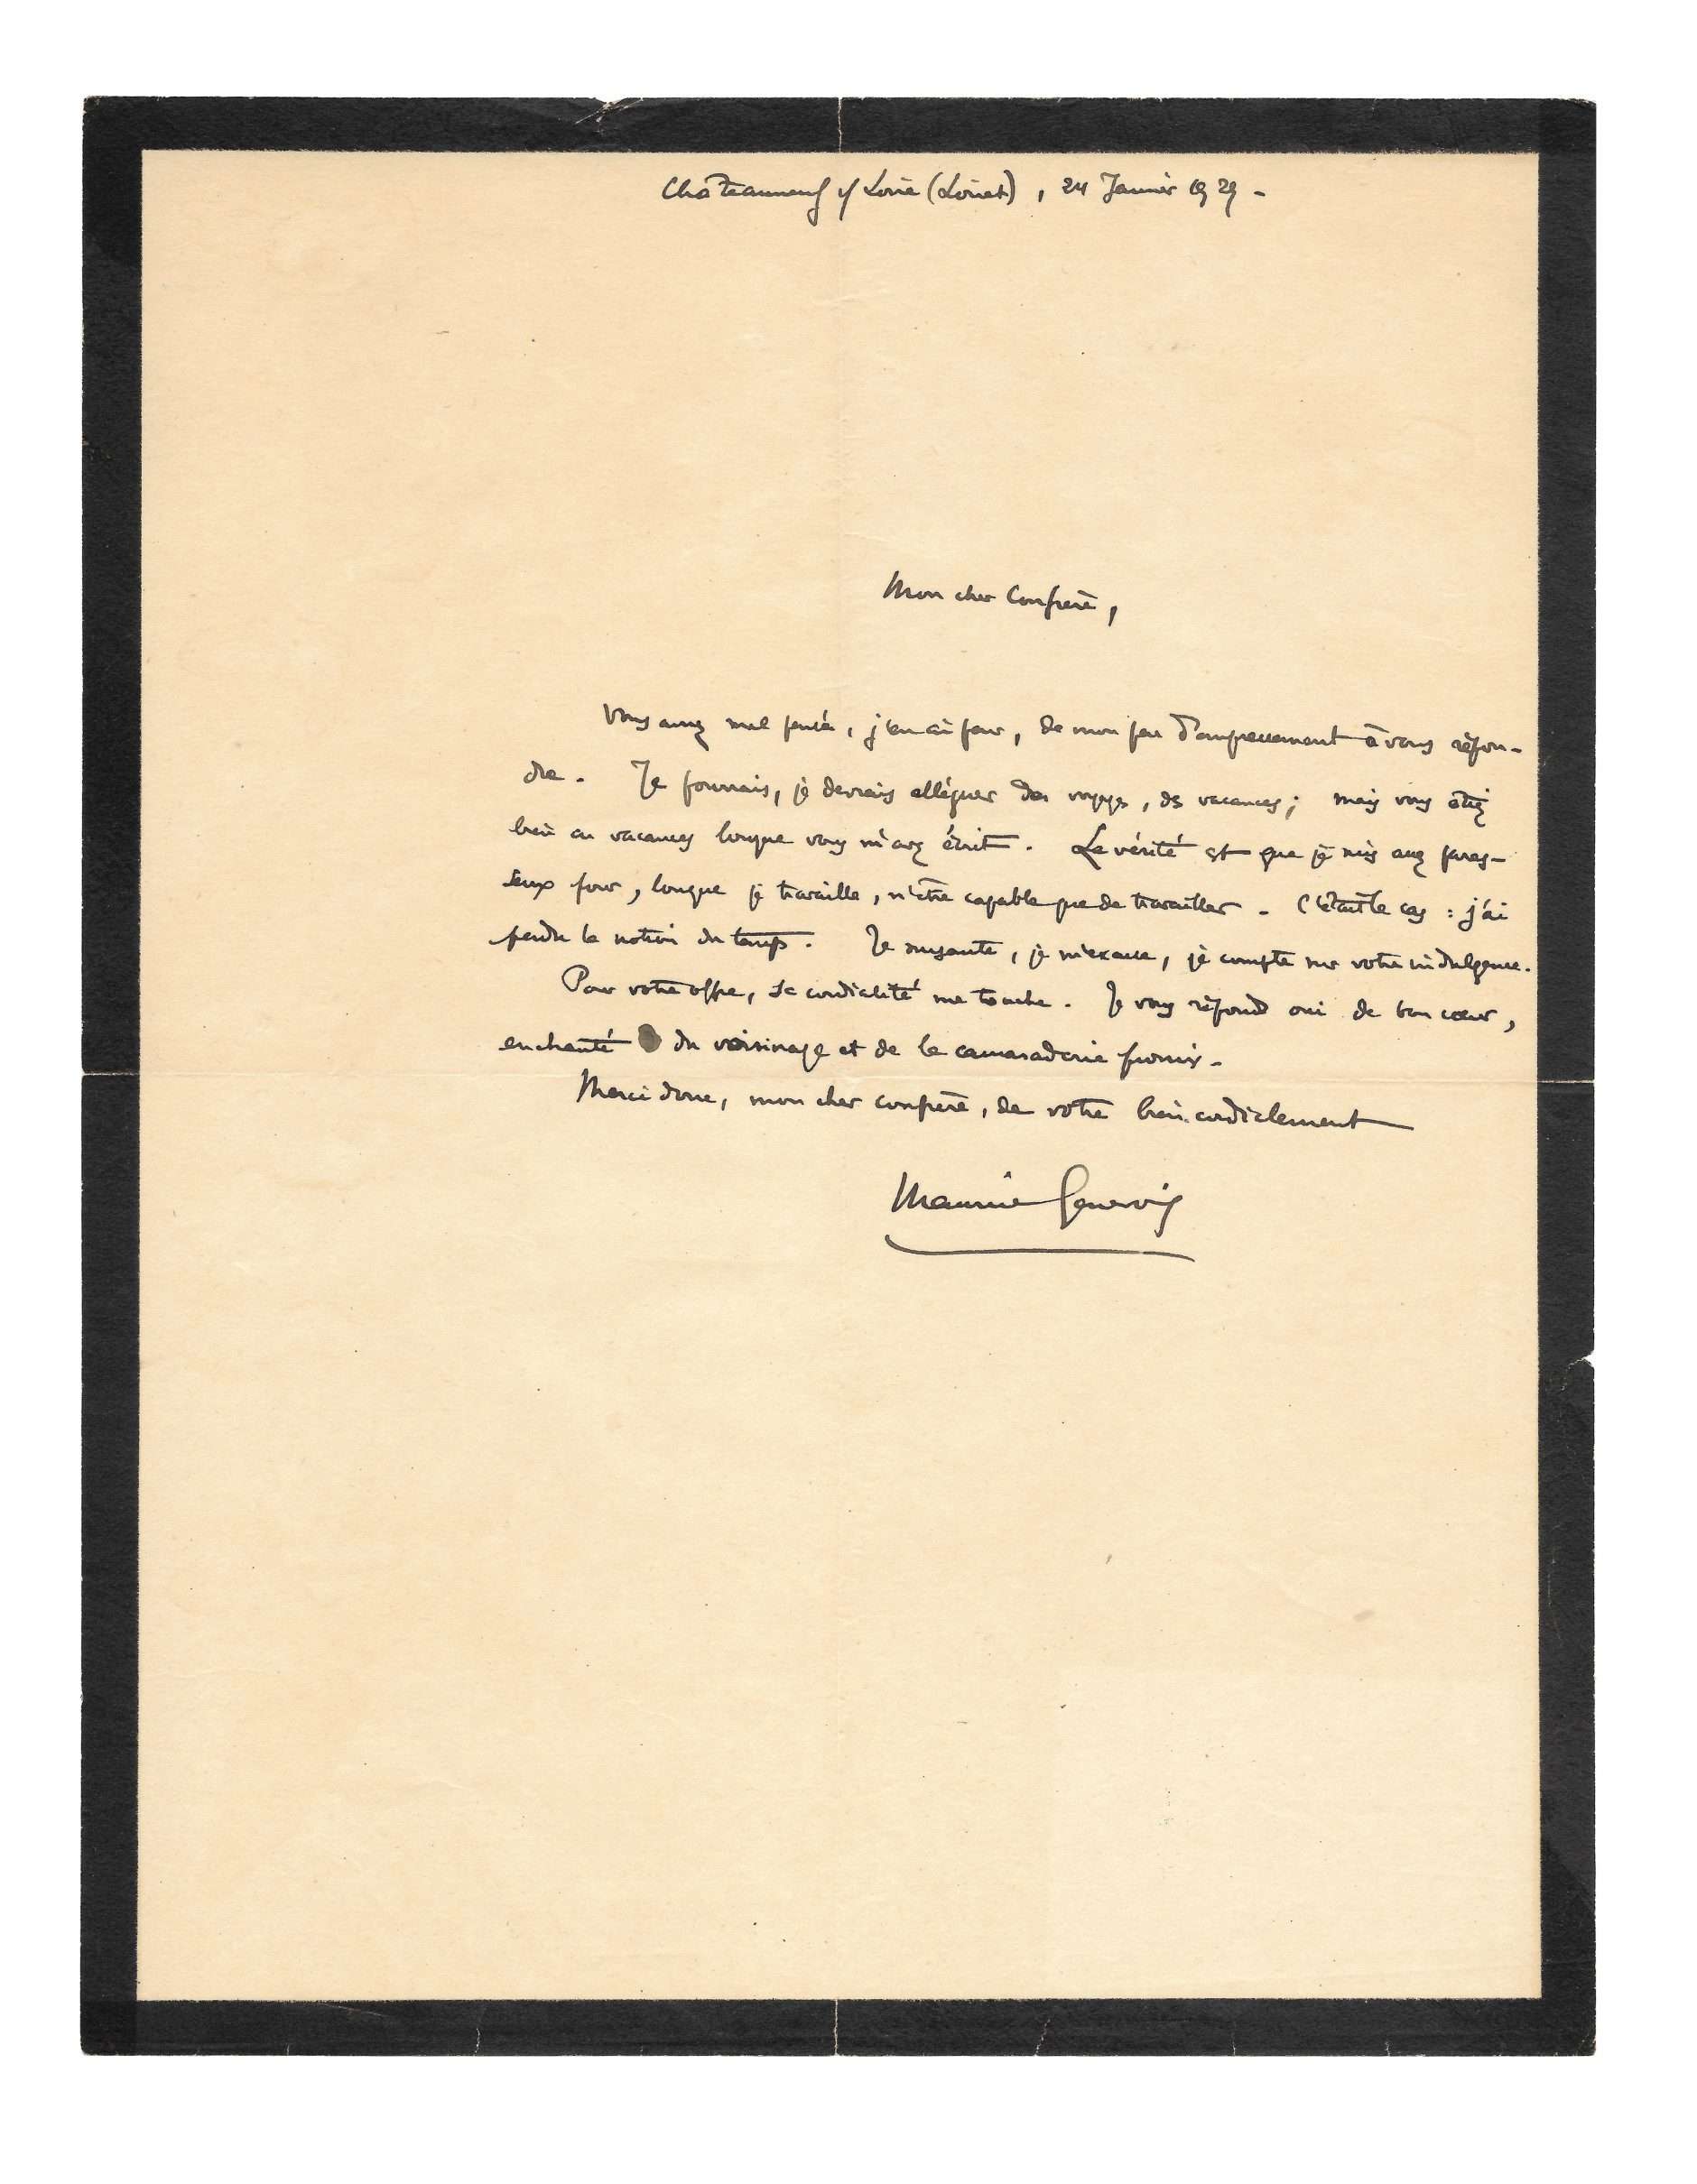 Châteauneuf s/ Loire (Loiret), 24 Janvier 1929 -
Mon cher Confrère,
Vous aurez mal pensé, j'en ai peur, de mon peu d'empressement à vous répon-
dre. Je pourrais, je devrais alléguer des voyages, des vacances ; mais vous étiez
bien en vacances lorsque vous m'avez écrit. La vérité est que je suis assez pares-
seux pour, lorsque je travaille, n'être capable que de travailler. C'était le cas : j'ai
perdu la notion du temps. Je , je m'excuse, je compte sur votre indulgence.
Pour votre offre, sa cordialité me touche. Je vous réponds oui de bon cœur,
enchanté du voisinage et de la camaraderie promis.
Merci donc, mon cher confrère, de votre bien cordialement
Maurice Genevoix